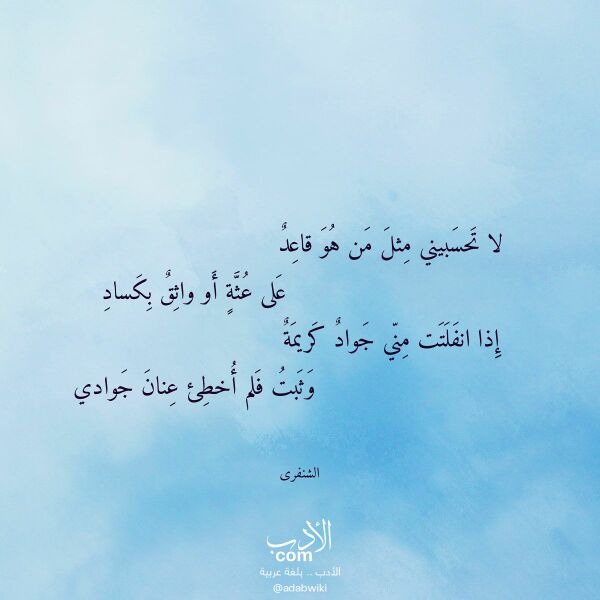 لا تَحسَبيني مِثلَ مَن هُوَ قاعِدٌ
عَلى عُثَّةٍ أَو واثِقٌ بِكَسادِ
إِذا انفَلَتَت مِنّي جَوادٌ كَريمَةٌ
وَثَبتُ فَلم أُخطِئ عِنانَ جَوادي
الشنفرى
الأدب
com
الأدب .. بلغة عربية
@adabwiki